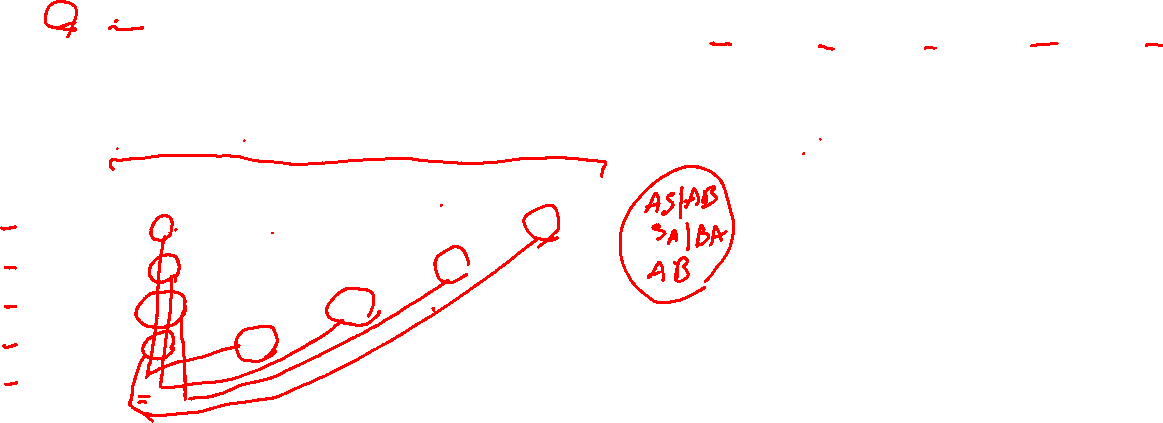 Q
AS/AB
SA/BA
AB